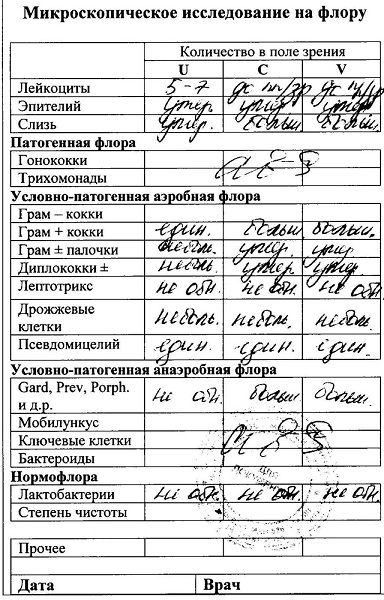 Микроскопическое исследование на флору
Количество в поле зрения
U C V
Лейкоциты 5-7
Эпителий умер. умер. умер.
Слизь умер. больш. больш.
Патогенная флора
Гонококки
Трихомонады
Условно-патогенная аэробная флора
Грам – кокки
Грам + кокки един. больш. больш.
Грам ± палочки неболь. умер. умер.
Диплококки ± неболь. умер. умер.
Лептотрикс не обн. не обн. не обн.
Дрожжевые
клетки неболь. неболь. неболь.
Псевдомицелий един. един. един.
Условно-патогенная анаэробная флора
Gard, Prev, Porph.
и д.р. не обн. больш. больш.
Мобилункус
Ключевые клетки
Бактероиды
Нормофлора
Лактобактерии не обн. не обн. не обн.
Степень чистоты
Прочее
Дата Врач